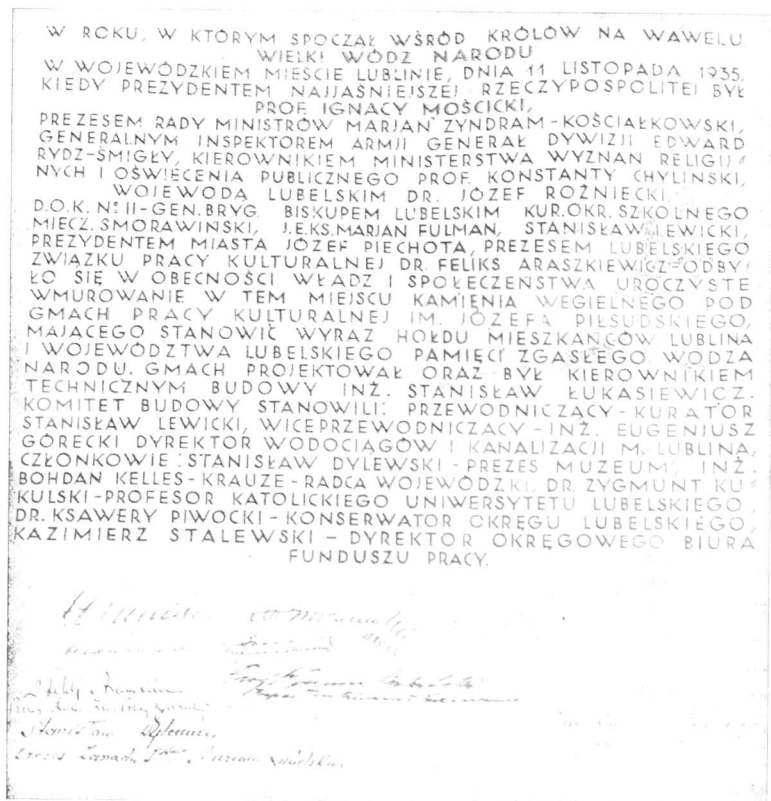 W ROKU, W KTÓRYM SPOCZĄŁ WŚRÓD KRÓLÓW NA WAWELU
WIELKI WÓDZ NARODU
W WOJEWÓDZKIEM MIEŚCIE LUBLINIE, DNIA 11 LISTOPADA 1935,
KIEDY PREZYDENTEM NAJJAŚNIEJSZEJ RZECZYPOSPOLITEJ BYŁ
PROF. IGNACY MOŚCICKI,
PREZESEM RADY MINISTRÓW MARJAN ZYNDRAM-KOŚCIAŁKOWSKI,
GENERALNYM INSPEKTOREM ARMJI GENERAŁ DYWIZJI EDWARD
RYDZ-ŚMIGŁY, KIEROWNIKIEM MINISTERSTWA WYZNAN RELIGIJ-
NYCH I OŚWIECENIA PUBLICZNEGO PROF. KONSTANTY CHYLINSKI,
WOJEWODĄ LUBELSKIM DR. JÓZEF ROŻNIECKI.
D.O.K. Nº II-GEN. BRYG. BISKUPEM LUBELSKIM KUR. OKR. SZKOLNEGO
MIECZ. SMORAWIŃSKI, J.EKS. MARJAN FULMAN, STANISŁAW LEWICKI,
PREZYDENTEM MIASTA JÓZEF PIECHOTA, PREZESEM LUBELSKIEGO
ZWIĄZKU PRACY KULTURALNEJ DR. FELIKS ARASZKIEWICZ=ODBY-
ŁO SIĘ W OBECNOŚCI WŁADZ I SPOŁECZEŃSTWA UROCZYSTE
WMUROWANIE W TEM MIEJSCU KAMIENIA WĘGIELNEGO POD
GMACH PRACY KULTURALNEJ IM. JÓZEFA PIŁSUDSKIEGO,
MAJĄCEGO STANOWIĆ WYRAZ HOŁDU MIESZKAŃCÓW LUBLINA
I WOJEWÓDZTWA LUBELSKIEGO PAMIĘCI ZGASŁEGO WODZA
NARODU. GMACH PROJEKTOWAŁ ORAZ BYŁ KIEROWNIKIEM
TECHNICZNYM BUDOWY INŻ. STANISŁAW ŁUKASIEWICZ.
KOMITET BUDOWY STANOWILI: PRZEWODNICZĄCY-KURATOR
STANISŁAW LEWICKI, WICEPRZEWODNICZĄCY-INŻ. EUGENIUSZ
GÓRECKI DYREKTOR WODOCIĄGÓW I KANALIZACJI M. LUBLINA,
CZŁONKOWIE: STANISŁAW DYLEWSKI-PREZES MUZEUM, INŻ.
BOHDAN KELLES-KRAUZE-RADCA WOJEWÓDZKI, DR. ZYGMUNT KU-
KULSKI-PROFESOR KATOLICKIEGO UNIWERSYTETU LUBELSKIEGO,
DR. KSAWERY PIWOCKI-KONSERWATOR OKRĘGU LUBELSKIEGO,
KAZIMIERZ STALEWSKI-DYREKTOR OKRĘGOWEGO BIURA
FUNDUSZU PRACY.
Stanisław
Prezes Muzeum